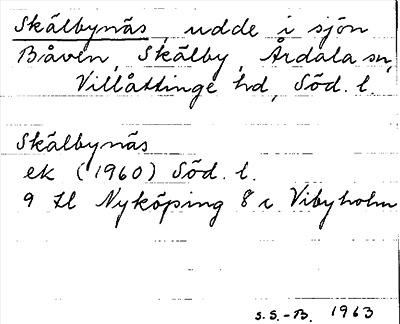 Skälbynäs, udde i sjön
Båven, Skälby, Årdala sn,
Villåttinge hd, Söd. l.
Skälbynäs
ek (1960) Söd. l.
9 H Nyköping 8 c Vibyholm
S.S.-B. 1963